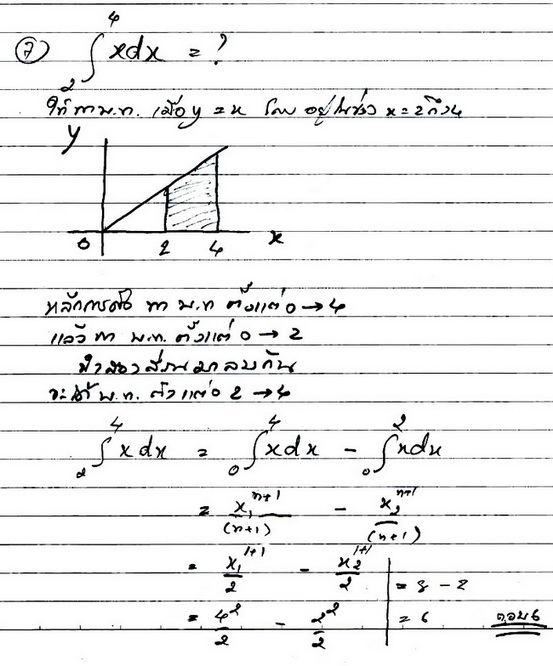 ⑦ ∫₂⁴ xdx = ?
ให้หา พ.ท. เมื่อ y = x โดย อยู่ในช่วง x = 2 ถึง 4
y
0 2 4 x
หลักการคือ หา พ.ท ตั้งแต่ 0 → 4
แล้ว หา พ.ท. ตั้งแต่ 0 → 2
นำสองส่วนมาลบกัน
จะได้ พ.ท. ตั้งแต่ 2 → 4
∫₂⁴ x dx = ∫₀⁴ x dx - ∫₀² x dx
= x₁ⁿ⁺¹/(n+1) - x₂ⁿ⁺¹/(n+1)
= x₁¹⁺¹/2 - x₂¹⁺¹/2
= 4²/2 - 2²/2
= 8 - 2
= 6 ตอบ 6